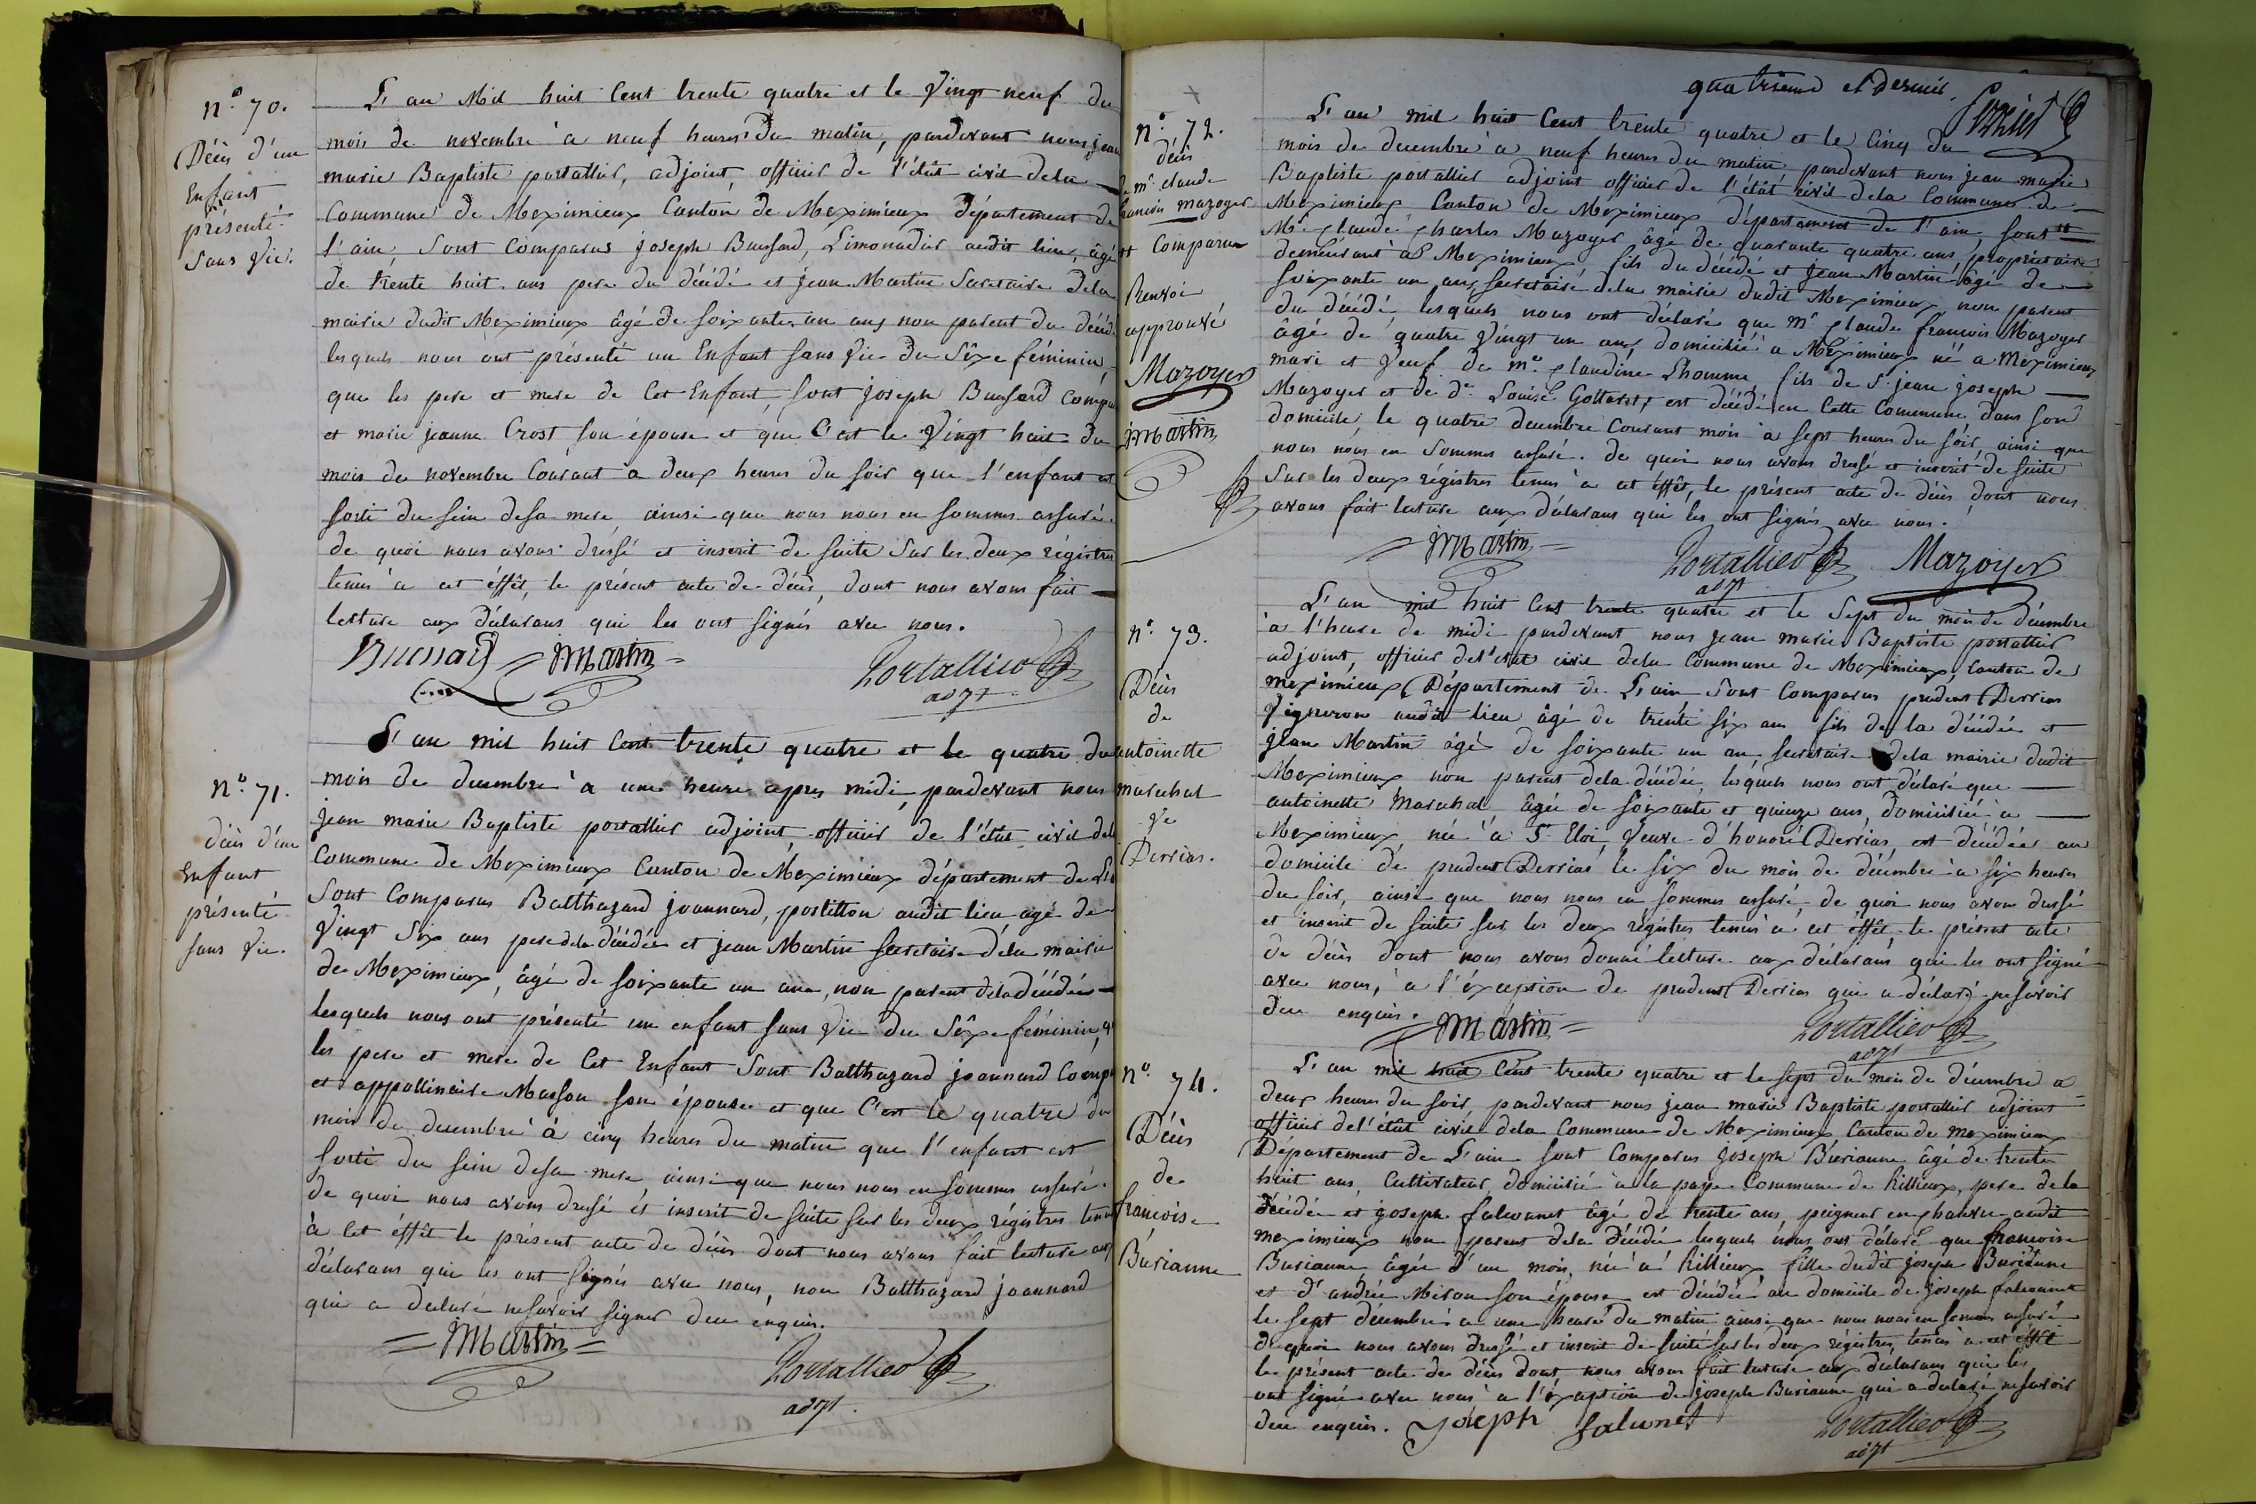 n.o 70.
Décès d'un
Enfant
présenté
Sans Vie.
L'an Mil huit Cent trente quatre et le Vingt neuf du
mois de novembre à neuf heures du matin, pardevant nous jean
marie Baptiste portallier, adjoint, officier de l'état civil dela
Commune de Meximieux Canton de Meximieux département de
l'ain, Sont Comparus joseph Limonadier audit lieu, âgé
de trente huit ans pere du décédé et jean Martin Secretaire dela
mairie dudit Meximieux âgé de soixante un ans non parent du décédé
lesquels nous ont présenté un Enfant sans Vie du Sèxe féminin,
que les pere et mere de Cet Enfant, sont joseph
et marie jeanne Crost son épouse et que C'est le Vingt huit du
mois de novembre Courant à deux heures du soir que l'enfant est
sorti du sein desa mere, ainsi que nous nous en sommes assuré.
de quoi nous avons dréssé et inscrit de suite Sur les deux régistres
tenus à cet éffêt, le présent acte de décès, dont nous avons fait
lecture aux déclarans qui les ont signés avec nous.
JMartin
Portallier
adjt
n.o 71.
décès d'un
Enfant
présenté
sans Vie.
L'an mil huit Cent trente quatre et le quatre du
mois de decembre à une heure apres midi, pardevant nous
jean marie Baptiste portallier adjoint officier de l'état civil dela
Commune de Meximieux Canton de Meximieux département de L'
Sont Comparus Balthazard joannard, postillon audit lieu agé de
Vingt Six ans pere dela décédée et jean Martin secretaire déla mairie
de Meximieux, âgé de soixante un ans, non parent dela décédée
lesquels nous ont présenté un enfant sans Vie du Sèxe féminin, q
les pere et mere de Cet Enfant Sont Balthazard joannard Comp
et appollinaire Masson son épouse et que C'est le quatre du
mois de decembre à cinq heures du matin que l'enfant est
sorti du sein desa mere, ainsi que nous nous en sommes assuré.
de quoi nous avons dressé et inscrit de suite sur les deux régistres tenus
à Cet éffêt le présent acte de décès dont nous avons fait lecture aux
déclarans qui les ont signés avec nous, non Balthazard joannard
qui a declaré nesavoir signer deu enquis.
JMartin
Portallier
adjt.
quatrième et dernier.
n.o 72.
décès
de mr. claude
francois mazoyer
Renvoi
approuvé
Mazoyer
JMartin
L'an mil huit Cent trente quatre et le Cinq du
mois de decembre à neuf heures du matin, pardevant nous jean marie
Baptiste portallier adjoint officier de l'état civil dela Commune de
Meximieux Canton de Meximieux département de l'ain, sont
Mr. claude charles Mazoyer âgé de quarante quatre ans, propriétaire
demeurant à Meximieux fils du décédé et jean Martin âgé de
soixante un ans, Secretaire dela mairie dudit Meximieux non parent
du décédé, lesquels nous ont déclaré que mr. claude francois Mazoyer
âgé de quatre Vingt un ans, domicilié à Meximieux né à Meximieux
mari et Veuf de me. claudine Lhomme, fils de S. jean joseph
Mazoyer et de De. Louise est décédé en Cette Commune dans son
domicile, le quatre decembre Courant mois à sept heures du soir, ainsi que
nous nous en Sommes assuré. de quoi nous avons dressé et inscrit de suite
Sur les deux régistres tenus à cet éffêt, le présent acte de décès, dont nous
avons fait lecture aux déclarans qui les ont signés avec nous.
JMartin
Portallier
adjt
Mazoyer
n.o 73.
Décès
de
antoinette
marechal
Ve
Derrias.
L'an mil huit Cent trente quatre et le Sept du mois de décembre
à l'heure de midi pardevant nous jean marie Baptiste portallier
adjoint, officier del'etat civil dela Commune de Meximieux, canton de
meximieux, Département de L'ain Sont Comparus prudent Derrias
Vigneron audit lieu âgé de trente six ans fils de la décédée et
jean Martin agé de soixante un an, secretaire dela mairie dudit
Meximieux non parent dela décédée, lesquels nous ont déclaré que
antoinette Marechal âgée de soixante et quinze ans, domiciliée à
Meximieux née à St. Eloi, Veuve d'honoré Derrias, est décédée au
domicile de prudent Derrias le six du mois de décembre à six heures
du soir, ainsi que nous nous en sommes assuré, de quoi nous avons dressé
et inscrit de suite sur les deux régistres tenus à cet éffêt le présent acte
de décès dont nous avons donné lecture aux déclarans, qui les ont signé
avec nous, à l'éxception de prudent Derrias qui a déclaré nesavoir
deu enquis.
JMartin
Portallier
adjt
n.o 74.
Décès
de
francoise
Burianne
L'an mil huit Cent trente quatre et le sept du mois de décembre a
deux heures du soir, pardevant nous jean marie Baptiste portallier adjoint
officier del'état civil dela Commune de Meximieux, Canton de meximieux
Département de L'ain sont Comparus joseph Burianne âgé de trente
huit ans, Cultivateur, domicilié à la pape Commune de Rillieux, pere dela
décédée et joseph falconnet âgé de trente ans, peigneur en chanvre audit
meximieux non parent dela décédée lesquels nous ont déclaré que francoise
Burianne âgée d'un mois, née à Rillieux, fille dudit joseph Burianne
et d'andrée son épouse est décédée au domicile de joseph falconnet
le sept décembre à une heure du matin ainsi que nous nous en sommes assuré
de quoi nous avons dressé et inscrit de suite sur les deux régistres, tenus à cet éffêt
le présent acte de décès dont nous avons fait lecture aux déclarans qui les
ont signé avec nous à l'éxception de joseph Burianne qui a declaré nesavoir
deu enquis.
Joseph falconet
Portallier
adjt